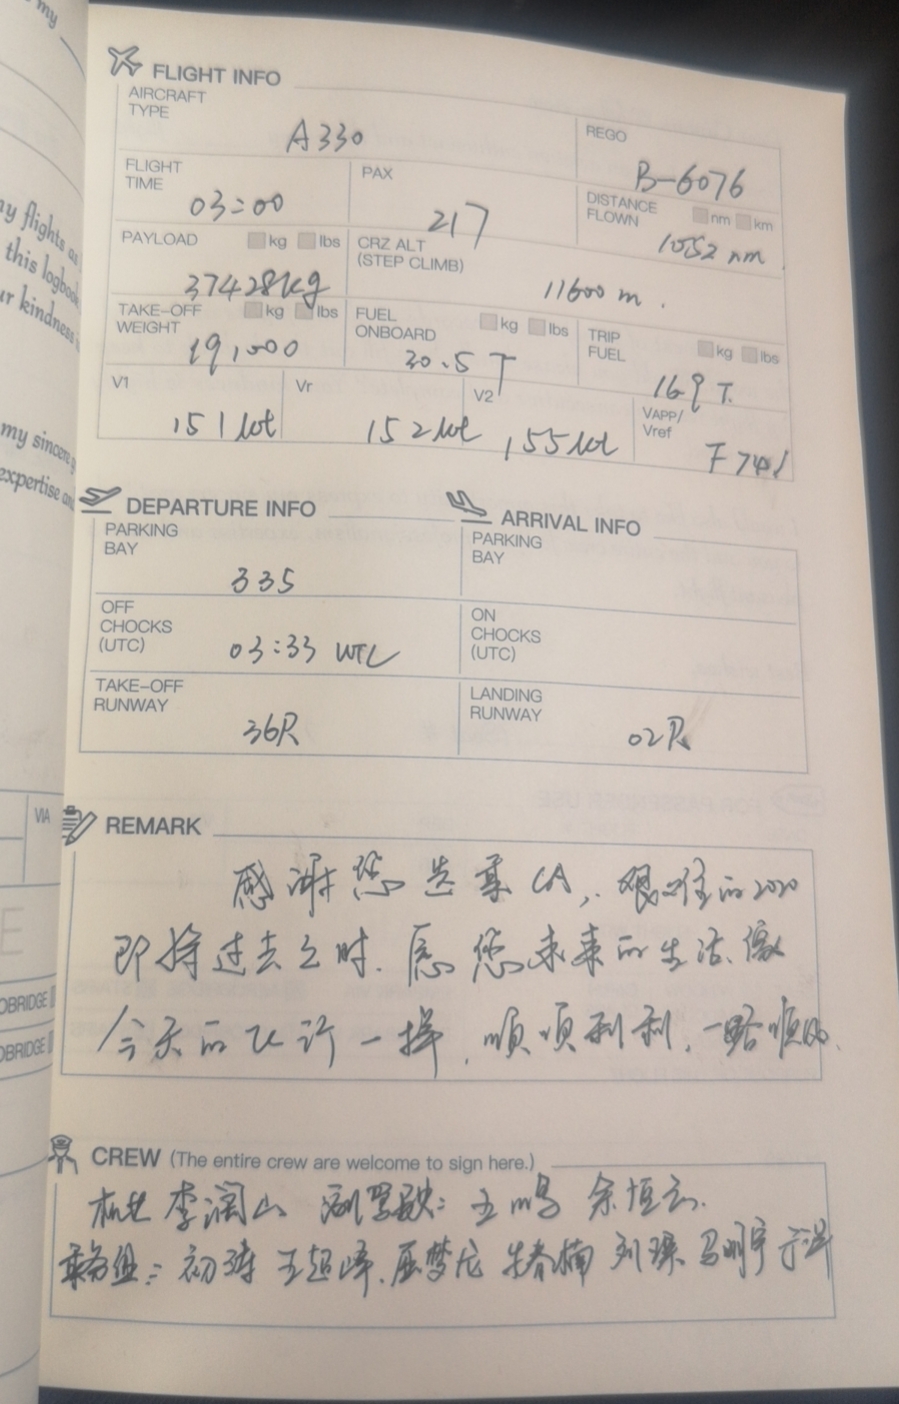 my
FLIGHT INFO
AIRCRAFT
TYPE
A330
REGO
B-6076
FLIGHT
TIME
03:00
PAX
217
DISTANCE
FLOWN
nm km
1052 nm
PAYLOAD
kg lbs
37428kg
CRZ ALT
(STEP CLIMB)
11600 m.
TAKE-OFF
WEIGHT
kg lbs
191,000
FUEL
ONBOARD
kg lbs
30.5 T
TRIP
FUEL
kg lbs
16.9 T.
V1
151 kt
Vr
152 kt
V2
155 kt
VAPP/
Vref
DEPARTURE INFO
PARKING
BAY
335
OFF
CHOCKS
(UTC)
03:33 UTC
TAKE-OFF
RUNWAY
36R
ARRIVAL INFO
PARKING
BAY
ON
CHOCKS
(UTC)
LANDING
RUNWAY
02R
REMARK
感谢您选乘CA,艰难的2020
即将过去之时.愿您未来的生活,像
今天的飞行一样,顺顺利利,一路顺风.
CREW (The entire crew are welcome to sign here.)
机长 李润山 副驾驶: 王鸣 余恒云.
乘务组: 初涛 王超峰 屈梦龙 牛春楠 刘琛 马明宇 于洋
my flights as
this logbook
ur kindness
my sincere
expertise and
VIA
E
OBRIDGE
OBRIDGE